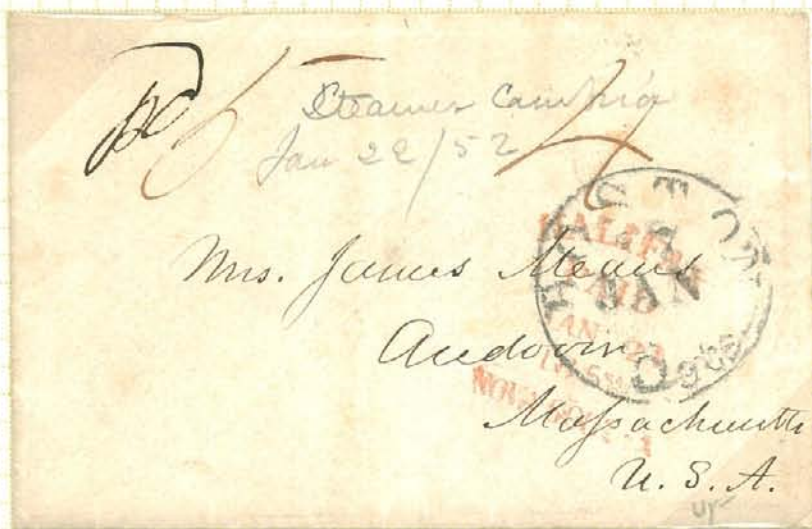 pd 5 4
Steamer Cambria
Jan 22/52
Mrs. James Means
Andover
Massachusetts
U. S. A.
BOSTON
JAN
HALIFAX
PAID
NOVA SCOTIA